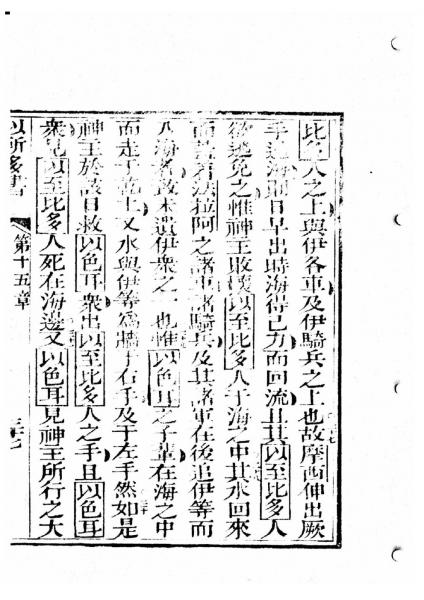 比多人之上與伊各車及伊騎兵之上也故摩西伸出厥
手過海而日早出時海得己力而回流且其以至比多人
欲逃免之惟神主敗壞以至比多人于海之中其水回來
而蓋着法拉阿之諸車諸騎兵及其諸軍在後追伊等而
入海者致未遺伊衆之一也惟以色耳之子輩在海之中
而走于乾土又水與伊等為牆于右手及于左手然如是
神主於該日救以色耳衆出以至比多人之手且以色耳
衆見以至比多人死在海邊又以色耳見神主所行之大
以所多書 第十五章